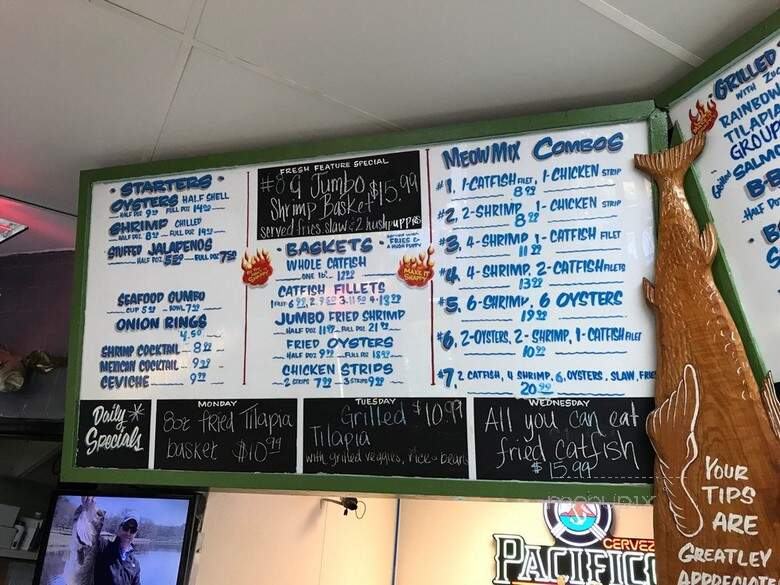 STARTERS
OYSTERS HALF SHELL
HALF DOZ 9 FULL DOZ 14
SHRIMP CHILLED
HALF DOZ 8 FULL DOZ 14
STUFFED JALAPENOS
HALF DOZ FULL DOZ 7
SEAFOOD GUMBO
CUP 5 BOWL 7
ONION RINGS
4.50
SHRIMP COCKTAIL 8
MEXICAN COCKTAIL 9
CEVICHE 9
FRESH FEATURE SPECIAL
#8 9 Jumbo
Shrimp Basket $15.99
served fries slaw & 2 hushpuppies
BASKETS
FRIES &
WHOLE CATFISH
ONE lb.
CATFISH FILLETS
JUMBO FRIED SHRIMP
HALF DOZ FULL DOZ 21
FRIED OYSTERS
HALF DOZ 9 FULL DOZ 18
CHICKEN STRIPS
2 STRIPS 7 3 STRIPS 9
MAKE IT
SNAPPY
MEOWMIX COMBOS
#1. 1-CATFISH FILET, 1-CHICKEN STRIP
8.99
#2. 2-SHRIMP 1-CHICKEN STRIP
8.99
#3. 4-SHRIMP 1-CATFISH FILET
11.99
#4. 4-SHRIMP, 2-CATFISH FILETS
13.99
#5. 6-SHRIMP, 6 OYSTERS
19.99
#6. 2-OYSTERS, 2-SHRIMP, 1-CATFISH FILET
10.99
#7. 2 CATFISH, 4 SHRIMP, 6, OYSTERS, SLAW, FRIES
20.99
Daily
Specials
MONDAY
8oz fried Tilapia
basket $10.99
TUESDAY
Grilled $10.99
Tilapia
with grilled veggies, rice & beans
WEDNESDAY
All you can eat
fried catfish
$15.99
GRILLED
WITH
RAINBOW
TILAPIA
GROUP
Grilled SALMO
HALF DOZ
YOUR
TIPS
ARE
GREATLEY
APPRECIATE
CERVEZ
PACIFICO